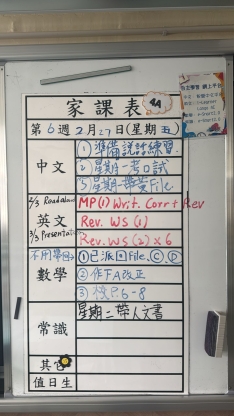 家課表
第6週2月27日(星期五)
中文
①準備說話練習
②星期一考口試
③星期一帶黃File
2/3 Readaloud
3/3 Presentation
英文
MP(1) Writ. Corr + Rev
Rev. WS (1)
Rev. WS (2) x 6
不用學冊
數學
①已派回File. Ⓒ Ⓓ
②作下A改正
P.6-8
常識
星期二帶人文書
其它
值日生
自主學習 網上平台